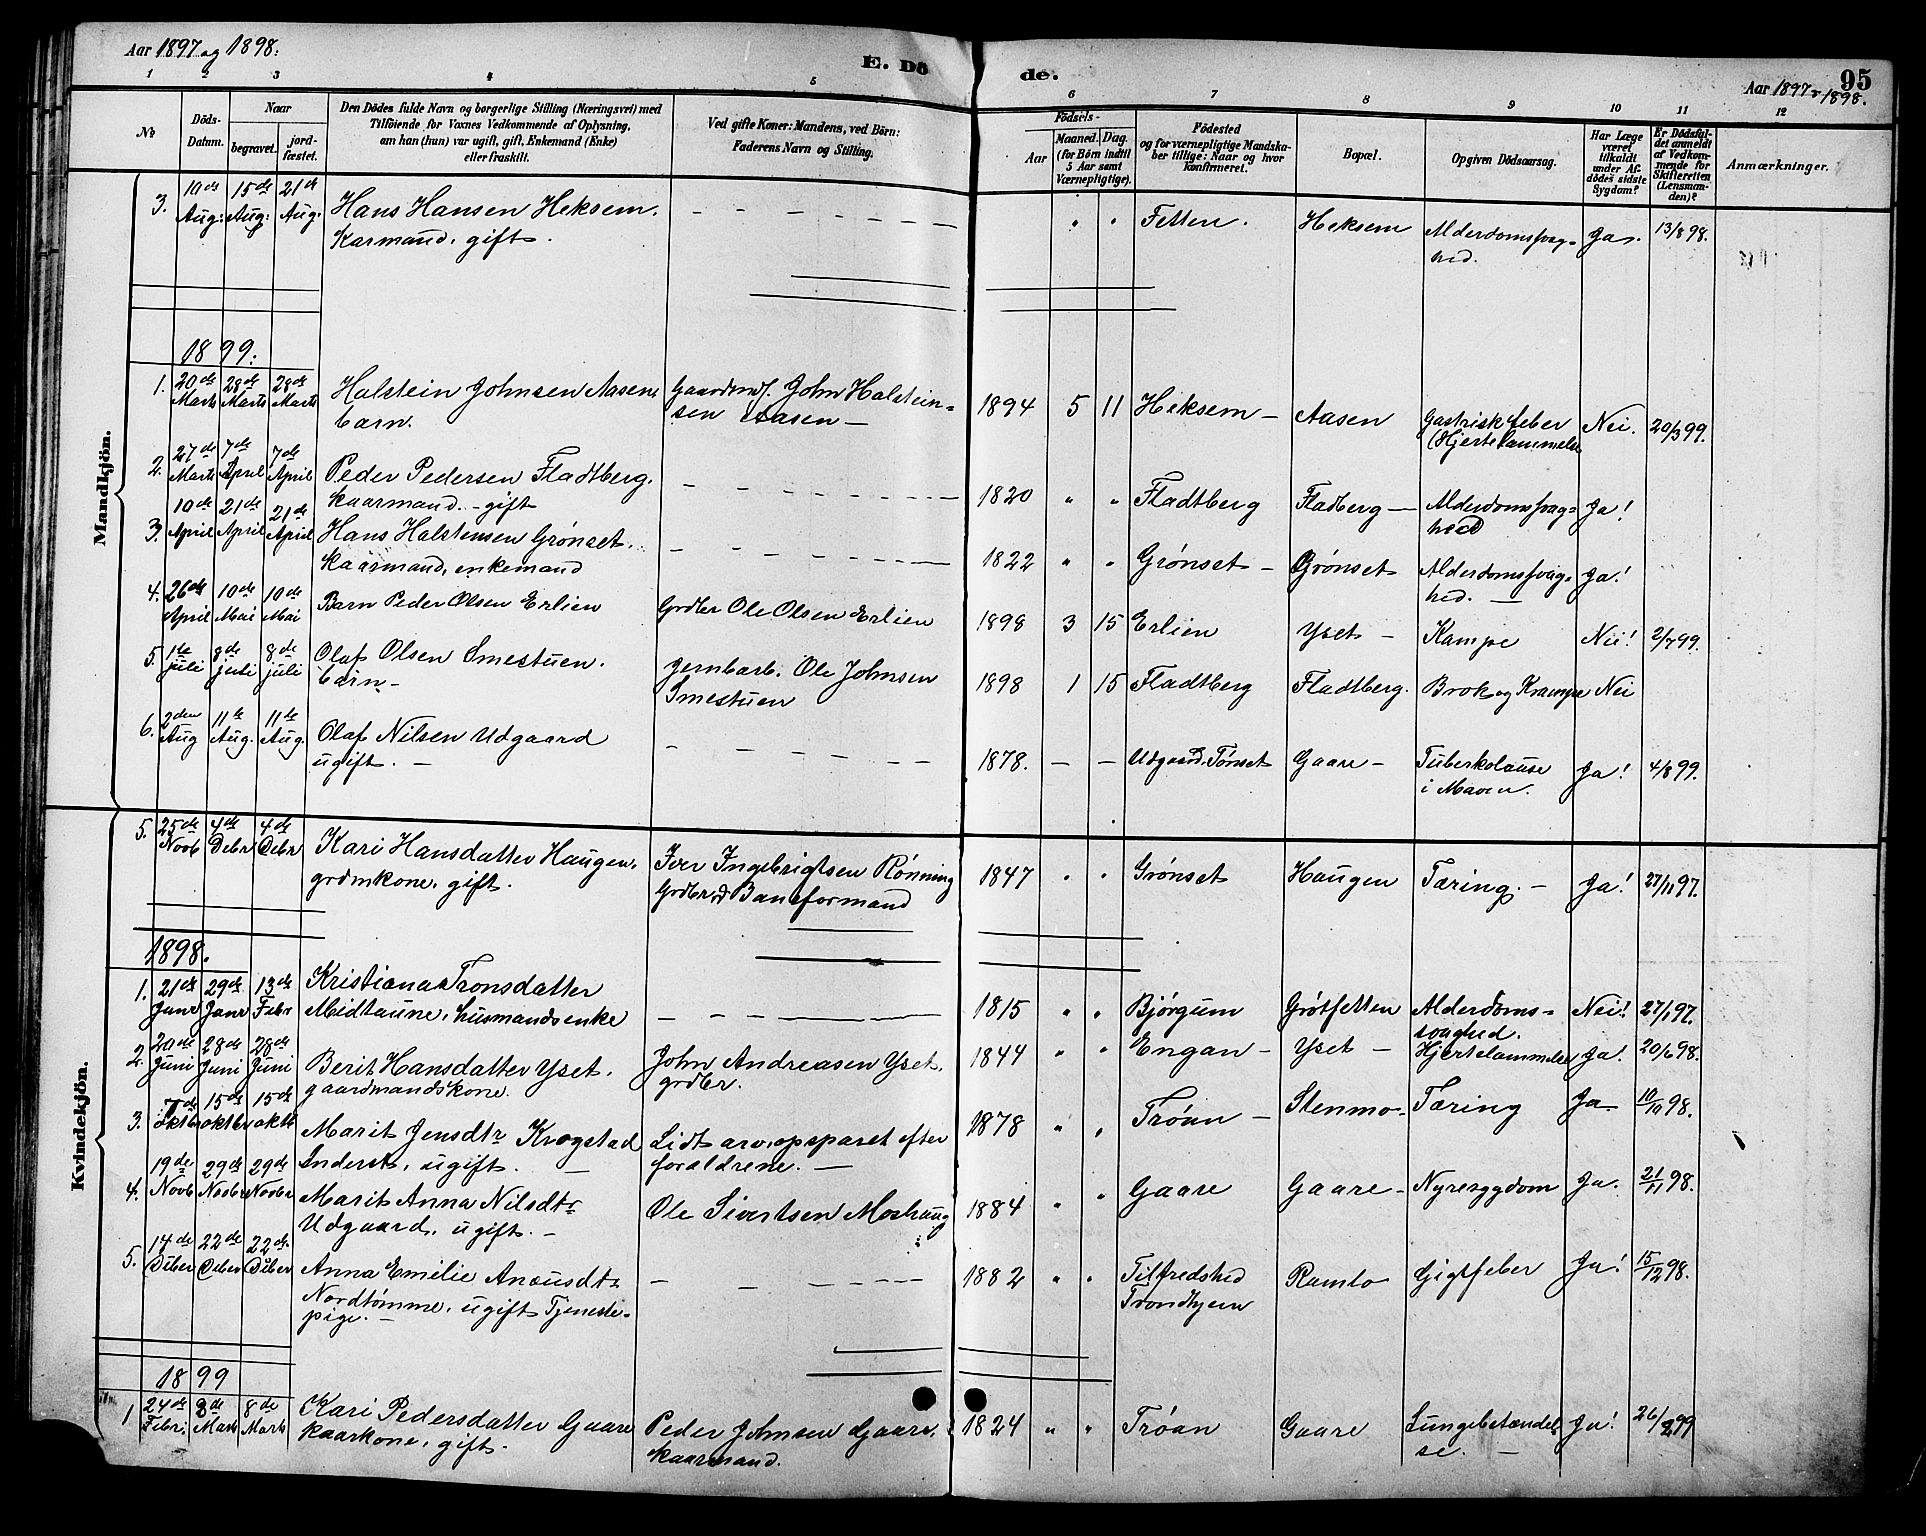 Aar 1897 og 1898:
E. Dö de.
Aar 1897 & 1898.
95
1 2 3 4 5 6 7 8 9 10 11 12
No
Döds-Datum.
Naar
begravet.
jordfæstet.
Den Dödes fulde Navn og borgerlige Stilling (Næringsvei) med
Tilföiende for Voxnes Vedkommende af Oplysning,
om han (hun) var ugift, gift, Enkemand (Enke)
eller fraskilt.
Ved gifte Koner: Mandens, ved Börn:
Faderens Navn og Stilling.
Födsels-
Aar
Maaned. Dag.
(for Börn indtil
5 Aar samt
Værnepligtige).
Födested
og for værnepligtige Mandskaber tillige: Naar og hvor
konfirmeret.
Bopæl.
Opgiven Dödsaarsag.
Har Læge
været
tilkaldt
under Afdödes sidste
Sygdom?
Er Dödsfaldet anmeldt
af Vedkommende for
Skifteretten
(Lensmanden)?
Anmærkninger.
Mandkjön.
3. 10de Aug: 15de Aug: 21de Aug. Hans Hansen Heksem. Karmand, gift. " " Fetten. Heksem Alderdomssvaghed. Ja. 13/8 98.
1899:
1. 20de Marts 28de Marts 28de Marts Halstein Johnsen Aasen, barn. Gaardmd. John Halsteinsen Aasen — 1894 5 11 Heksem — Aasen Gastrisk feber (Hjertelammelse Nei. 20/3 99.
2. 27de Marts 7de April 7de April Peder Pedersen Fladtberg. kaarmand. - gift 1820 " " Fladtberg Fladberg — Alderdomssvaghed Ja!
3. 10de April 21de April 21de April Hans Halstensen Grønset. kaarmand, enkemand 1822 " " Grønset — Grønset Alderdomssvaghed. — Ja!
4. 26de April 10de Mai 10de Mai Barn Peder Olsen Erlien Grdbr Ole Olsen Erlien 1898 3 15 Erlien Yset — Kampe Nei! 2/7 99.
5. 1te juli 8de juli 8de juli Olaf Olsen Smestuen. barn — Jernbarb. Ole Johnsen Smestuen 1898 1 15 Fladtberg Fladtberg. Brok og Krampe Nei
6. 2den Aug 11te Aug. 11te Aug. Olaf Nilsen Udgaard ugift. — 1878. — — Udgaard, Tønset Gaare — Tuberkolause i Maven. Ja! 4/8 99.
Kvindekjön.
5. 25de Novb 4de Debr 4de Debr Kari Hansdatter Haugen. grdmkone, gift. Iver Ingebrigtsen Rønning Grdbr og Baneformand 1847 " " Grønset Haugen Tæring. — Ja! 27/11 97.
1898.
1. 21de Janr 29de Janr 13de Febr Kristiana Tronsdatter Midtaune, husmandsenke 1815 " " Bjørgum Grøtfetten Alderdomssvaghed. Nei! 27/1 97.
2. 20de Juni 28de Juni 28de Juni Berit Hansdatter Yset. gaardmandskone. John Andreasen Yset. grdbr. 1844 " " Engan — Yset — Hjertelammelse Ja. 20/6 98.
3. 7de oktbr 15de oktbr 15de oktb Marit Jensdtr Krogstad inderst, ugift. — Lidt arv, opsparet efter forældrene. — 1878 " " Trøan — Stenmo — Tæring Ja — 10/10 98.
4. 19de Novb 29de Novbr 29de Novbr Marit Anna Nilsdtr Udgaard, ugift. — Ole Sivertsen Moshaug 1884 " " Gaare Gaare — Nyresygdom Ja. 21/11 98.
5. 14de Dcber 22de Dcber 22de Dcber Anna Emilie Anausdtr Nordtømme, ugift Tjenestepige. — 1882 " " Tilfredshed Trondhjem Ramlo Gigtfeber Ja! 15/12 98.
1899
1 24de Febr. 8de Marts 8de Marts Kari Pedersdatter Gaare kaarkone, gift. Peder Johnsen Gaare. kaarmand. 1824 " " Trøan Gaare Lungebetændelse. — Ja! 26/2 99